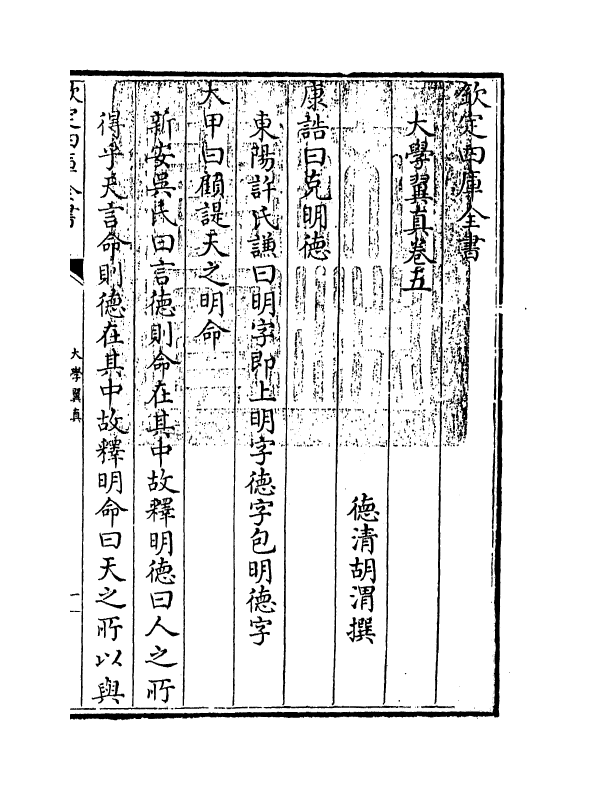 欽定四庫全書
大學翼真卷五
德清胡渭撰
康誥曰克明德
東陽許氏謙曰明字即上明字德字包明德字
大甲曰顧諟天之明命
新安吳氏曰言德則命在其中故釋明德曰人之所
得乎天言命則德在其中故釋明命曰天之所以與
欽定四庫全書
大學翼真
一